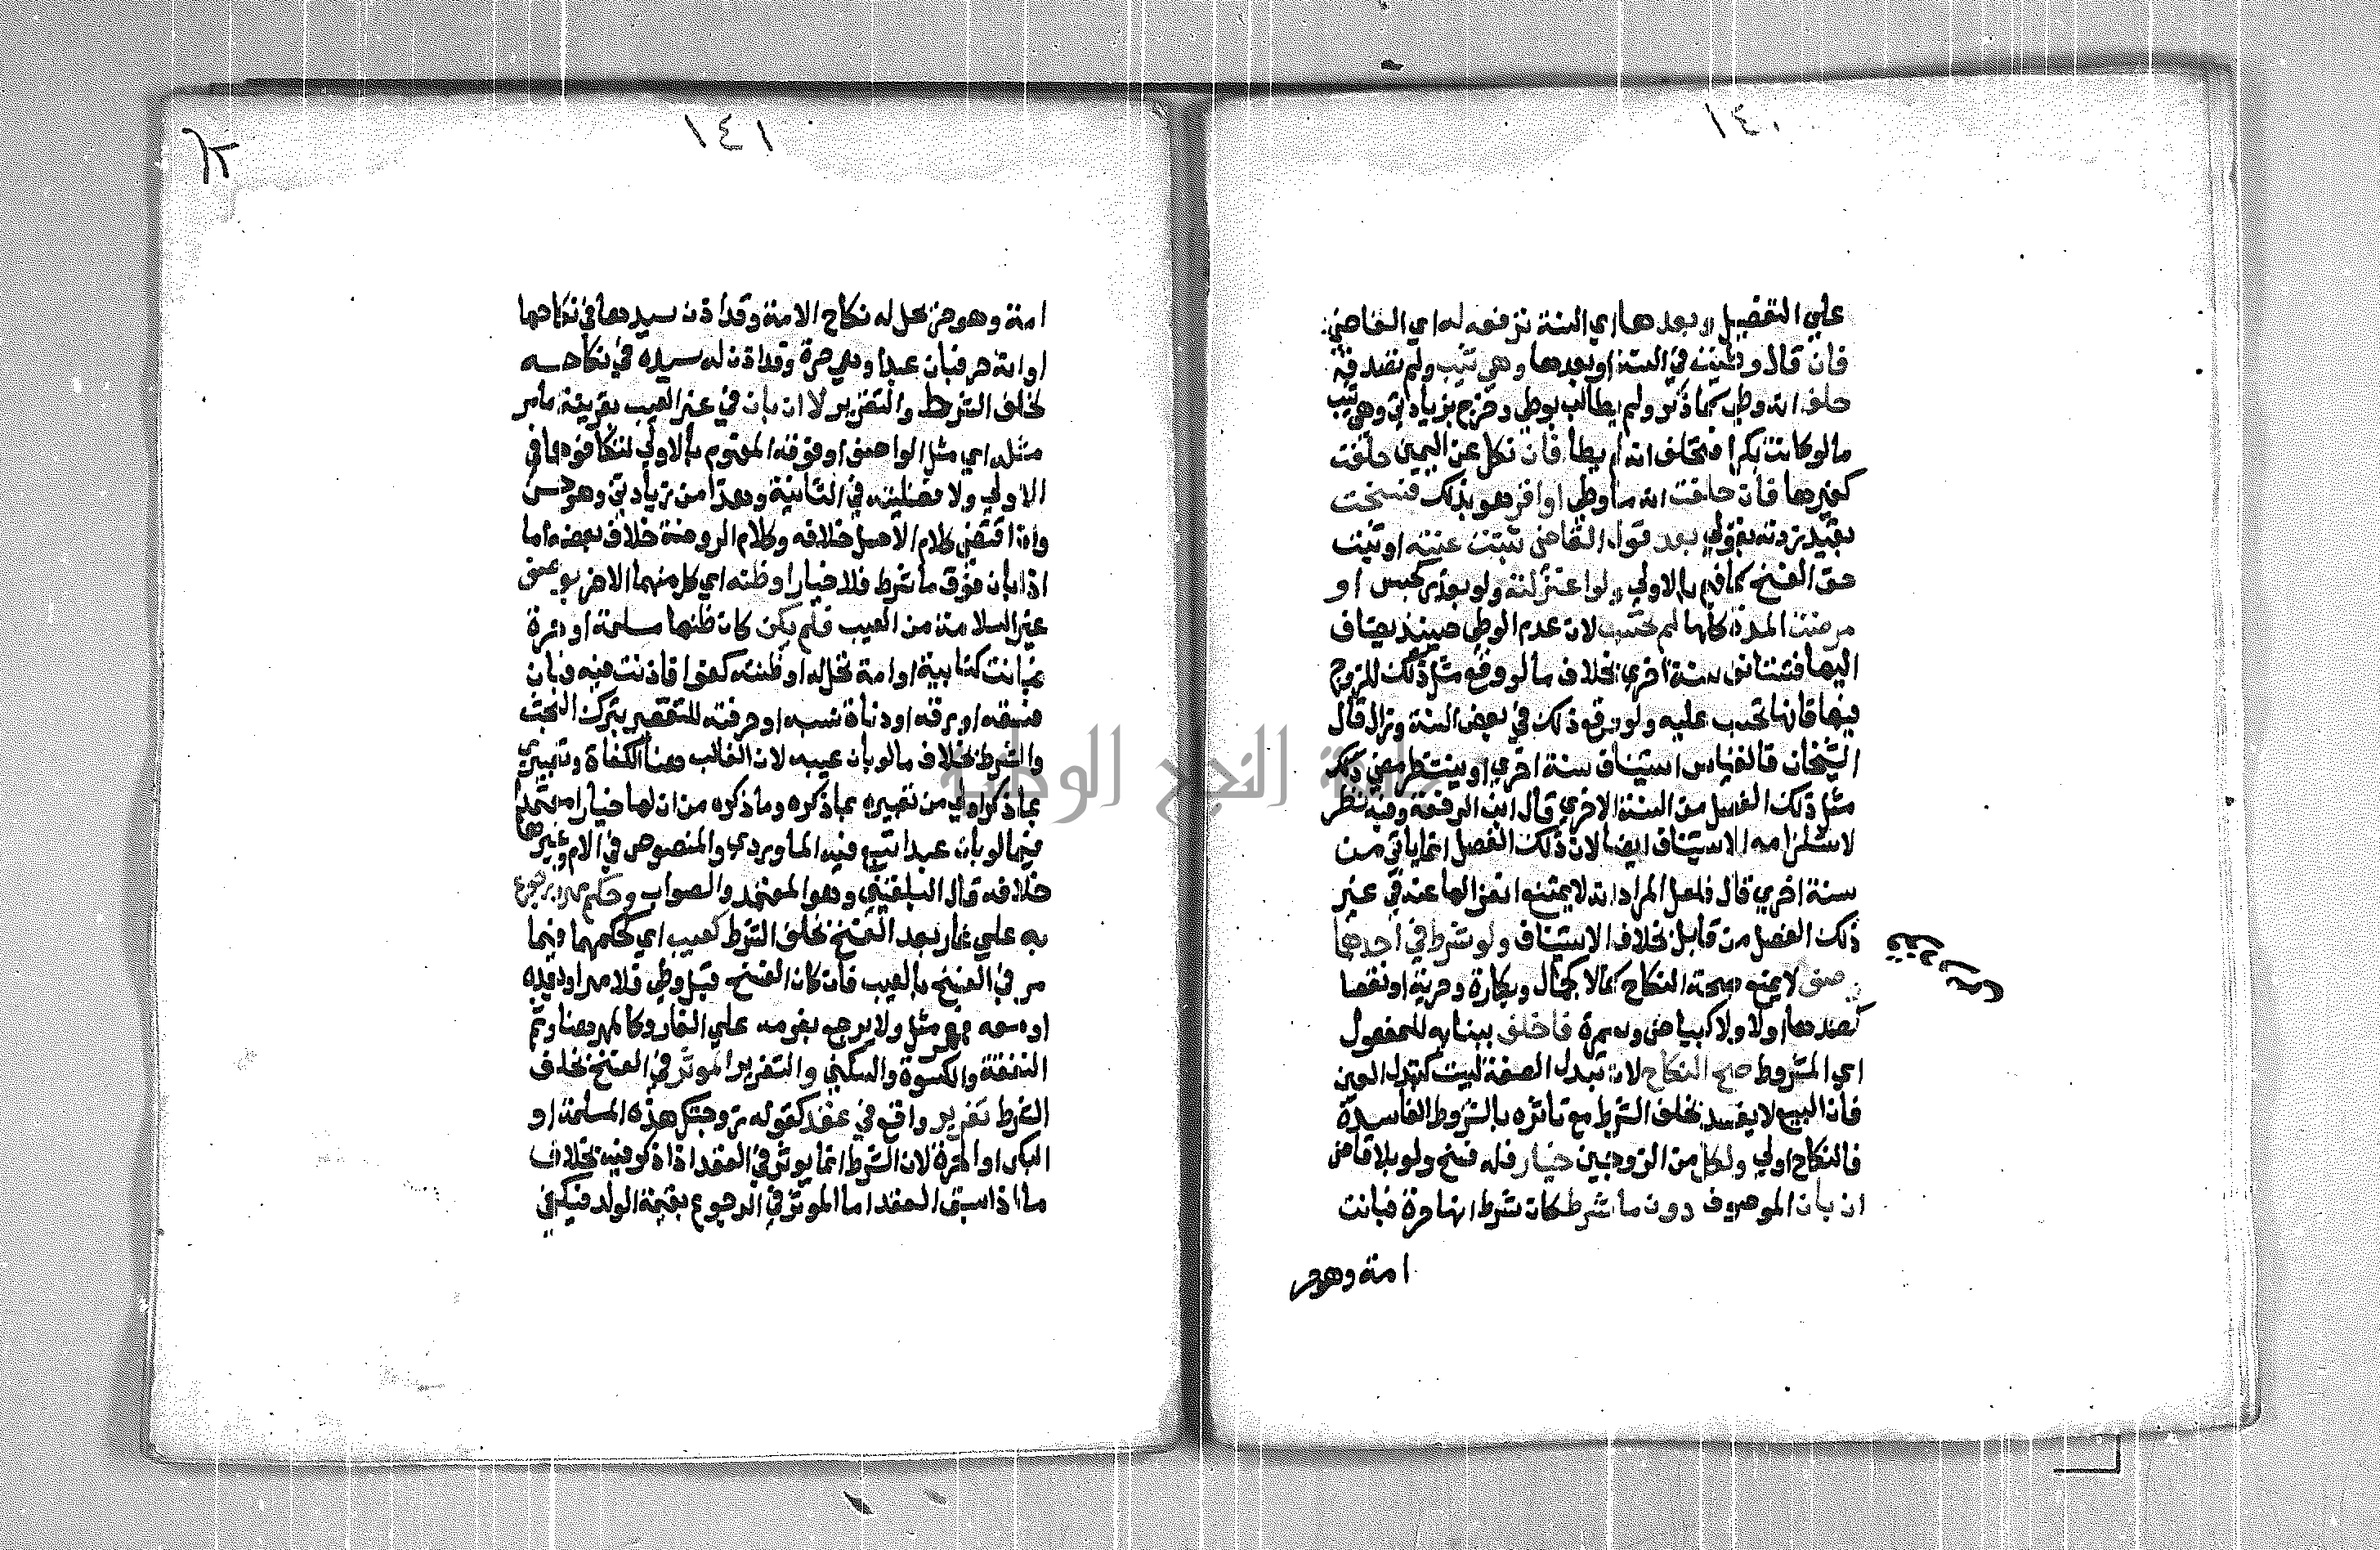 ١٤٠
علي التفصيل وبعدها اي السنة ترفعه له اي القاضي
فان قال وطئت في السنة او بعدها وهي ثيب ولم تصدقه
حلف انه وطي كما ذكر ولم يطالب بوطي وخرج بزيادتي وهي ثيب
مالو كانت بكرا فتحلف انه لم يطا فان نكل عن اليمين حلفت
كغيرها فان حلفت انه ما وطي او اقر هو بذلك فسخت
بقيد زدته بقولي بعد قول القاضي ثبتت عنته او ثبت
حق الفسخ كما فهم بالاولي ولو اعتزلته ولو بعذر كحبس او
مرضت المدة كلها لم تحتسب لان عدم الوطي حينئذ يضاف
اليها فتستانف سنة اخري بخلاف ما لو وقع مثل ذلك للزوج
فيها فانها تحسب عليه ولو وقع ذلك في بعض السنة وزال قال
الشيخان فالقياس استيناف سنة اخري او ينتظر مضي ذلك
مثل ذلك الفصل من السنة الاخري قال ابن الرفعة وفيه نظر
لاستلزامه الاستيناف ايضا لان ذلك الفصل انما ياتي من
سنة اخري قال فلعل المراد انه لا يمتنع انعزالها عنه في غير
ذلك الفصل من قابل بخلاف الاستيناف ولو شرط في احدهما
وصف لا يمنع صحة النكاح كمالا كجمال وبكارة وحرية او نقصا
كضدها اولا ولا كبياض وسمرة فاخلف ببنايه للمفعول
اي المشروط صح النكاح لان تبدل الصفة ليست كتبدل العين
فان البيع لا يفسد بخلف الشرط مع تاثره بالشروط الفاسدة
فالنكاح اولي ولكل من الزوجين خيار فله فسخ ولو بلا قاض
ان بان الموصوف دون ما شرط كان شرط انها حرة فبانت
امة وهو حر
١٤١
امة وهو حر يحل له نكاح الامة وقد اذن سيدها في نكاحها
او انه حر فبان عبدا وهي حرة وقد اذن له سيده في نكاحه
لخلف الشرط والتغرير لا ان بان في غير العيب بقرينة مامر
مثله اي مثل الواصف او فوقه المفهوم بالاولي لتكافوهما في
الاولي ولا فضليته في الثانية وهذا من زيادتي وهو حسن
وان اقتضي كلام الاصل خلافه وكلام الروضة خلاف بعضه اما
اذا بان فوق ما شرط فلا خيار او ظنه اي كل منهما الاخر بوصف
غير السلامة من العيب فلم يكن كان ظنها مسلمة او حرة
فبانت كتابية او امة تحل له او ظنته كفوا فاذنت فيه فبان
فسقه او رقه او دناة نسبه او حرفته للتقصير بترك البحث
والشرط بخلاف مالو بان عيبه لان الغالب هنا الكفاة وتعبيري
بما ذكر اولي من تعبيره بما ذكره وما ذكره من ان لها خيارا معتمدا
فيما لو بان عبدا تبع فيه الماوردي والمنصوص في الام وغيرها
خلافه قال البلقيني وهو المعتمد والصواب وحكم مهر ورجوع
به علي غار بعد الفسخ بخلف الشرط كعيب اي كحكمهما فيما
مر في الفسخ بالعيب فان كان الفسخ قبل وطي فلا مهر او بعده
او معه فمهر مثل ولا يرجع بغرمه علي الغار وكالمهر هنا وثم
النفقة والكسوة والسكني والتغرير الموثر في الفسخ بخلف
الشرط تغرير واقع في عقد كقوله زوجتك هذه المسلمة او
البكر او الحرة لان الشرط انما يوثر في العقد اذا ذكر فيه بخلاف
ما اذا سبق العقد اما الموثر في الرجوع بقيمة الولد فيكفي